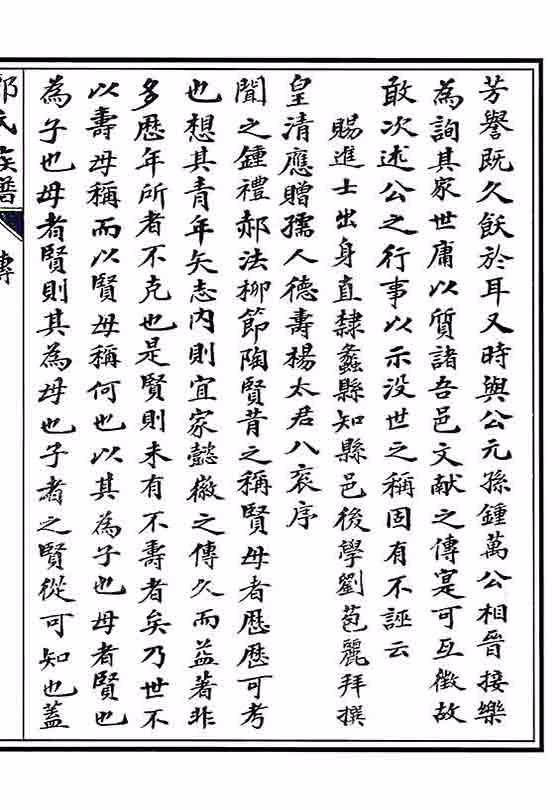 芳譽既久飫於耳又時與公元孫鍾萬公相晉接樂
為詢其家世庸以質諸吾邑文献之傳寔可互徵故
敢次述公之行事以示没世之稱固有不誣云
賜進士出身直隸蠡縣知縣邑後學劉苞麗拜撰
皇清應贈孺人德壽楊太君八袠序
聞之鍾禮郝法柳節陶賢昔之稱賢母者歷歷可考
也想其青年矢志内則宜家懿徽之傳久而益著非
多歷年所者不克也是賢則未有不壽者矣乃世不
以壽母稱而以賢母稱何也以其為子也母者賢也
為子也母者賢則其為母也子者之賢從可知也蓋
氏族譜
傳